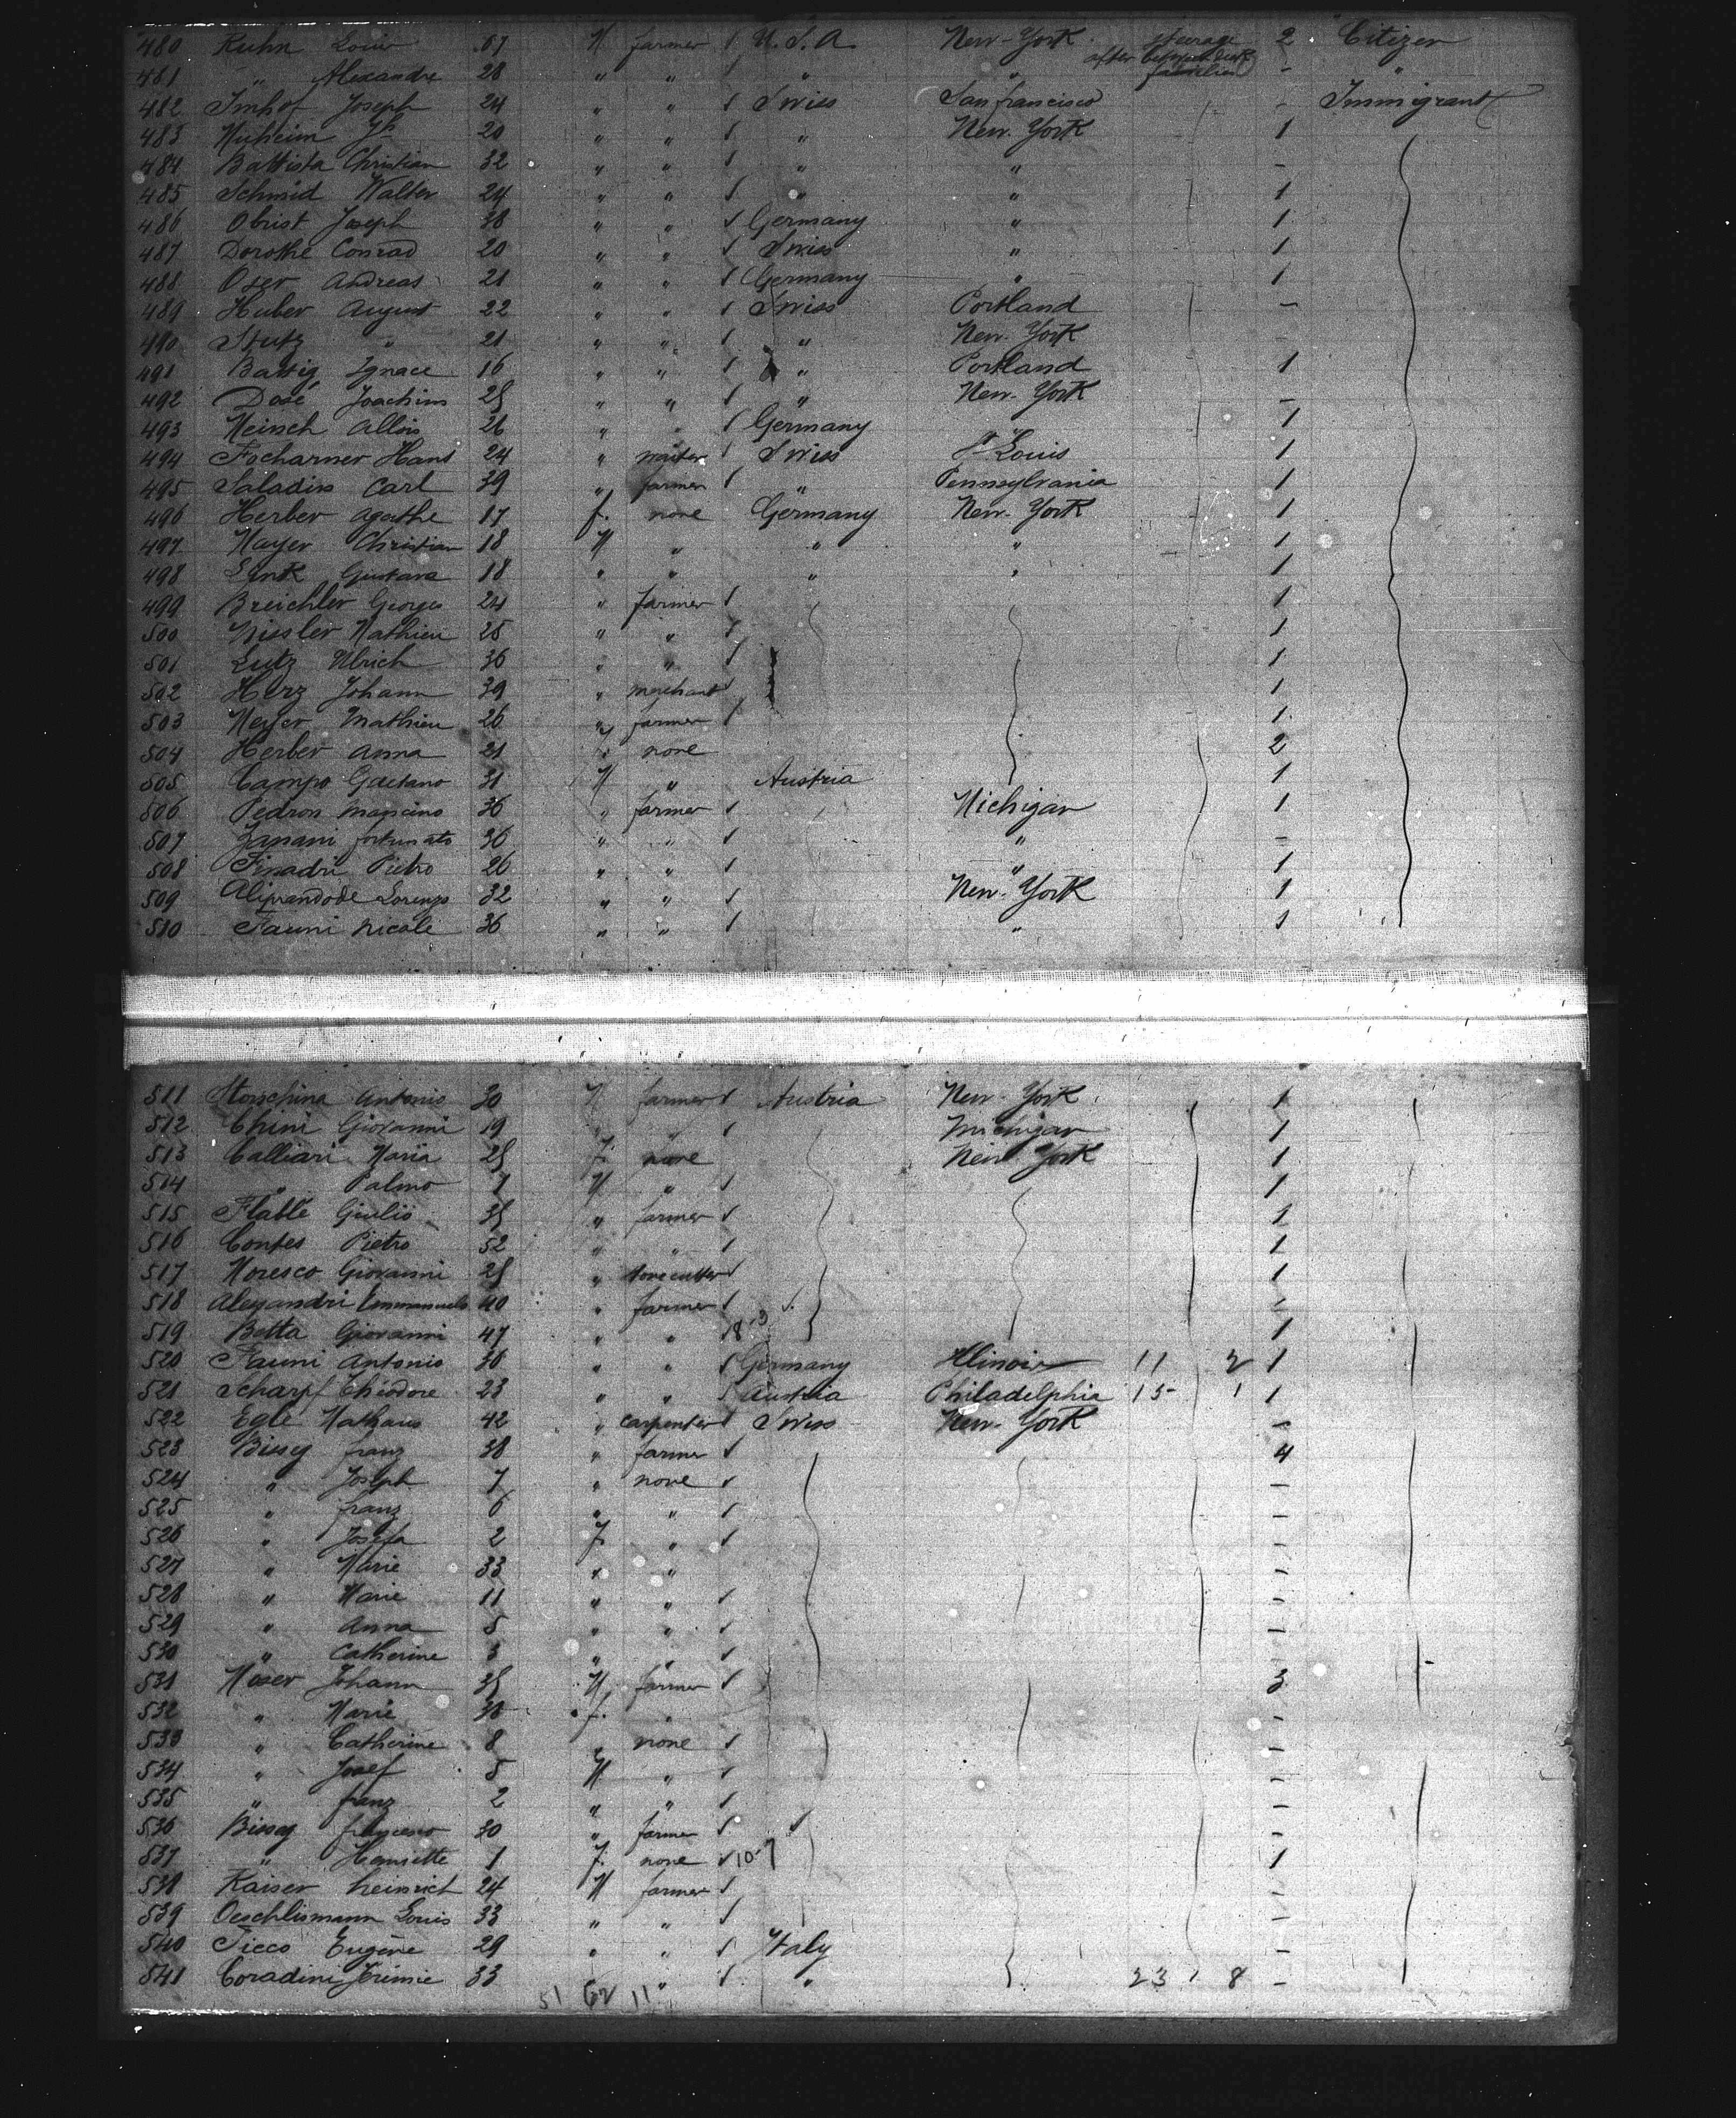 480 Kuhn Louis 67 M farmer / U.S.A. New-York steerage 2 Citizen
481 " Alexandre 28 " " / " " after betweendeck families - "
482 Imhof Joseph 24 " " / Swiss San francisco - Immigrant
483 Jh 20 " " / " New-York 1
484 Battista Christian 32 " " / " -
485 Schmid Walter 24 " " / " " 1
486 Obrist Joseph 38 " " / Germany " 1
487 Dorothe Conrad 20 " " / Swiss " 1
488 Oser Andreas 21 " " / Germany " 1
489 Huber August 22 " " / Swiss Portland -
490 Stutz " 21 " " / " New-York -
491 Battig Ignace 16 " " / " Portland 1
492 Joachim 25 " " / " New-York -
493 Meinch Allois 26 " " / Germany 1
494 Hans 24 " waiter / Swiss St Louis 1
495 Saladin Carl 39 " farmer / " Pennsylvania 1
496 Herber Agathe 17 f. none Germany New-York 1
497 Mayer Christian 18 M " " " 1
498 Gustava 18 " " " " 1
499 Breichler Georges 24 " farmer / 1
500 Nissler Mathieu 25 " " / 1
501 Lutz Ulrich 36 " " / 1
502 Herz Johann 39 " merchant / 1
503 Meyer Mathieu 26 " farmer / 1
504 Herber Anna 21 f. none 2
505 Campo Gaetano 31 M " Austria 1
506 Pedron 36 " farmer / Michigan 1
507 Zanani fortunato 30 " " / " -
508 Pietro 26 " " / " 1
509 Lorenzo 32 " " / New-York 1
510 Fauni Nicole 36 " " / " 1
511 Antonio 30 M farmer / Austria New-York 1
512 Chini Giovanni 19 " " / Michigan 1
513 Calliari Maria 25 f. none New York 1
514 " Palmo 7 M " / 1
515 Giulio 35 " farmer / 1
516 Contes Pietro 52 " " / 1
517 Moresco Giovanni 25 " / 1
518 Alexandri Emmanuele 40 " farmer / -
519 Betta Giovanni 47 " " / 8-3 1
520 Fauni Antonio 36 " " / Germany Illinois 11 2 1
521 Scharpf Théodore 23 " " / Austria Philadelphia 15 1 1
522 Egle Mathaus 42 " carpenter / Swiss New-York -
523 franz 38 " farmer / 4
524 " Joseph 7 " none / -
525 " franz 6 " " / -
526 " Josefa 2 f. " / -
527 " Marie 33 " " -
528 " Marie 11 " " / -
529 " Anna 5 " " / -
530 " Catherine 3 " " / -
531 Moser Johann 35 M farmer / 3
532 " Marie 38 f. " -
533 " Catherine 8 " none / -
534 " Josef 5 M " / -
535 " franz 2 " " / -
536 30 " farmer / -
537 " Henriette 1 f. none / 10-7 1
538 Kaiser heinrich 24 M farmer / -
539 Oeschlismann Louis 33 " " / -
540 Ticco Eugène 29 " " / Italy -
541 Coradini 33 " / " 23 1 8 -
51 62 11